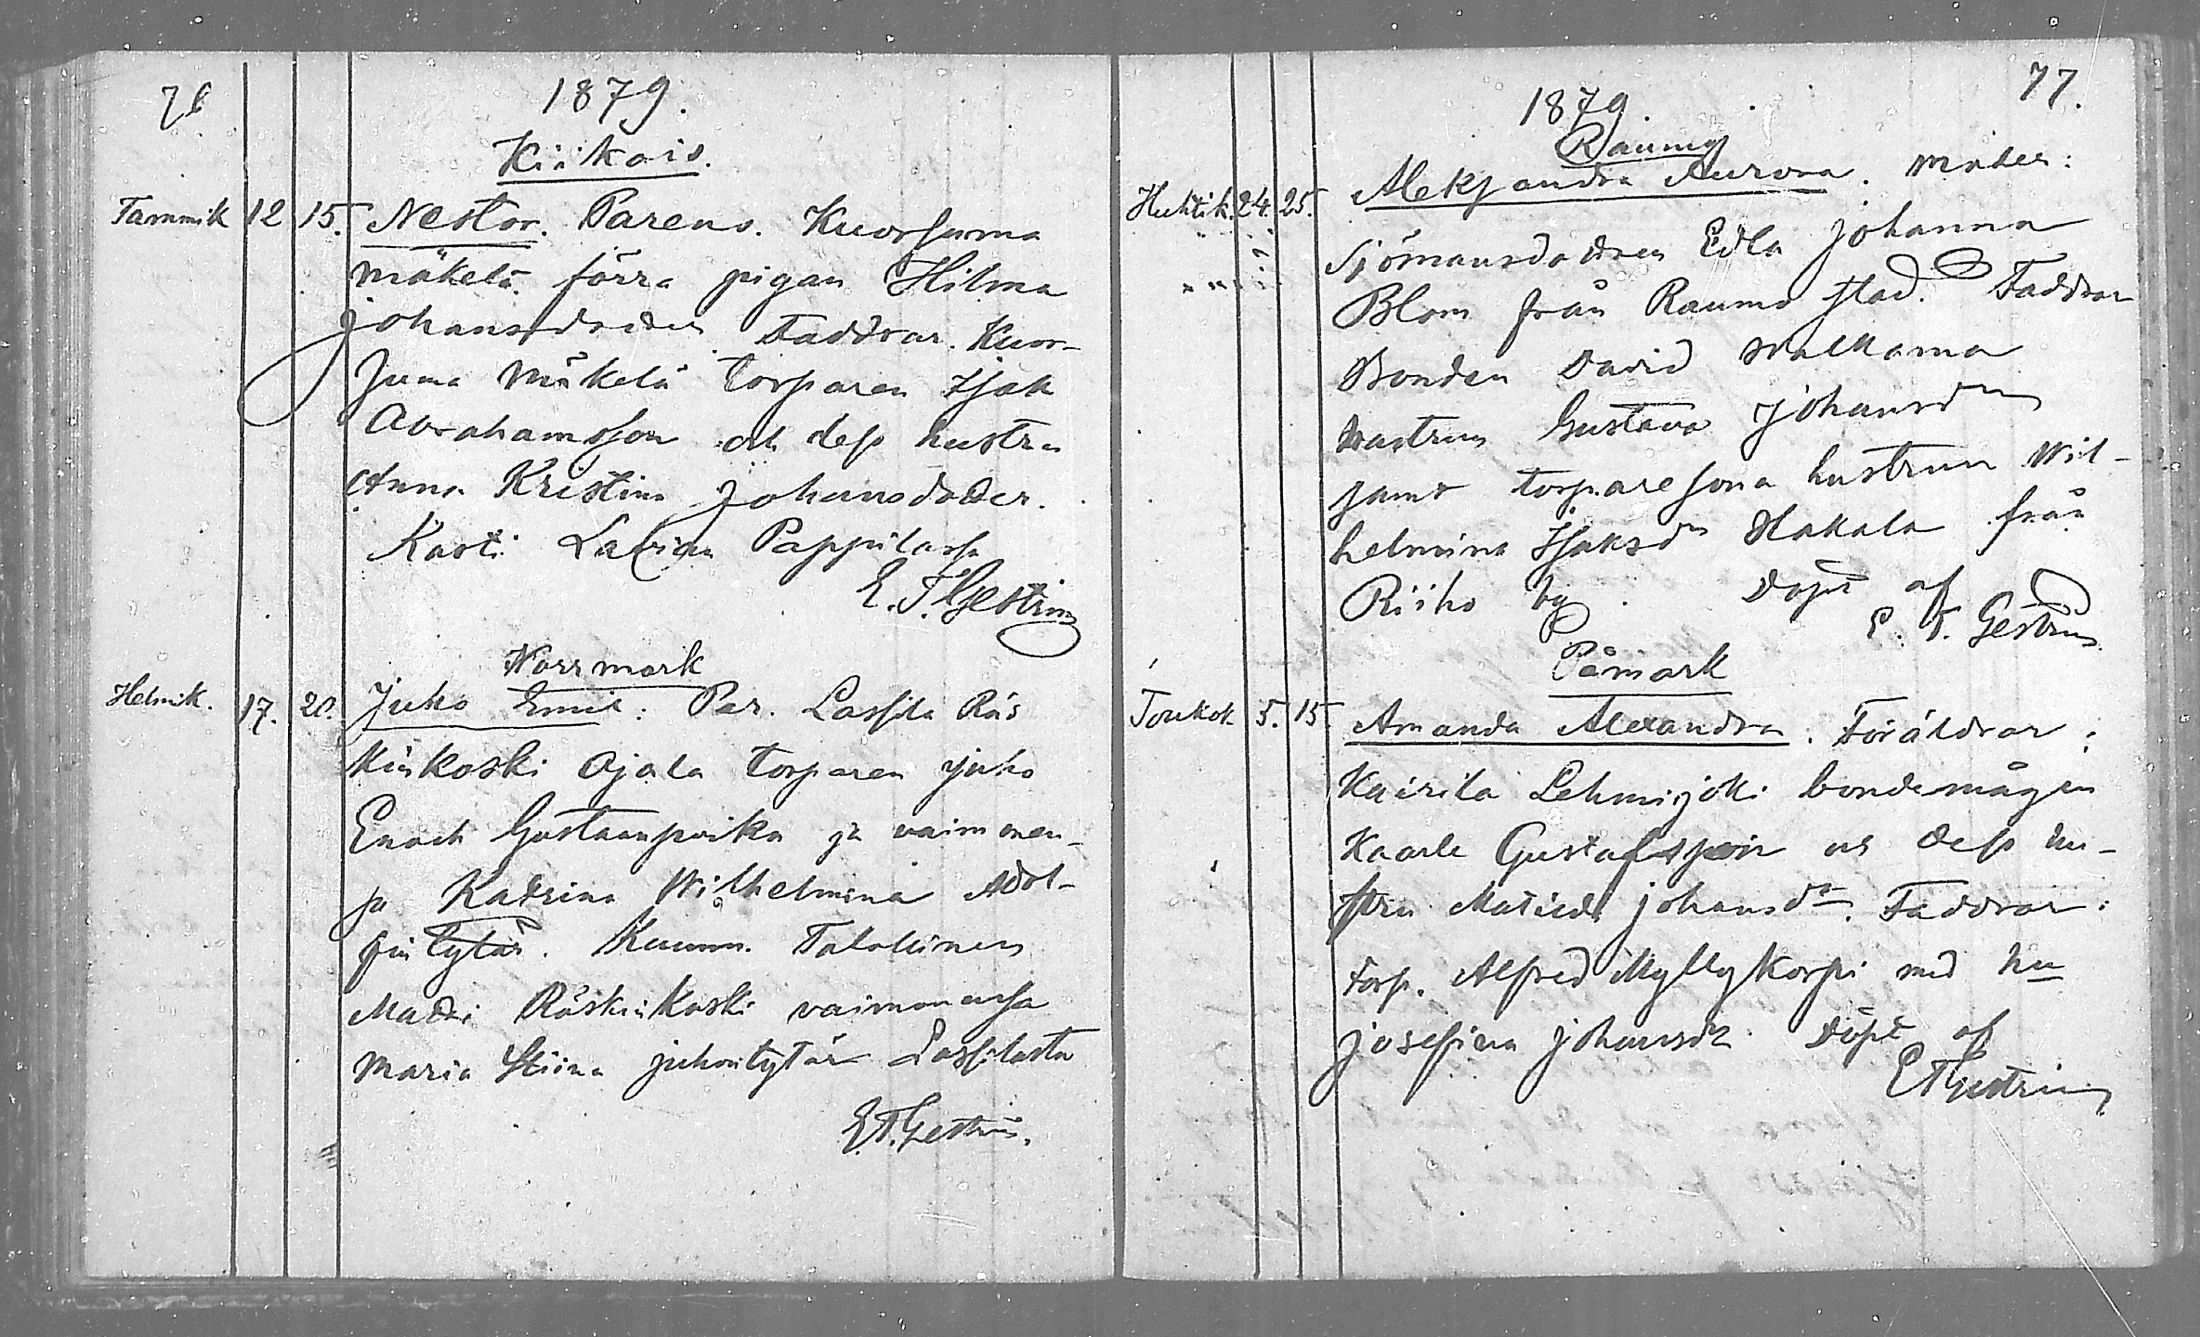 76
1879.
Kiikais.
Tammik 12 15. Nestor. Parens. Kuorsuma
Mäkelä förra pigan Hilma
Johansdoder Faddrar. Kuor-
suma Mäkelä torparen Isak
Abrahamsson och dess hustru
Anna Kristina Johansdoder.
Kasti Lavian Pappilassa
E. F. Gestrin
Norrmark
Helmik. 17. 20. Juho Emil: Par. Lassila Räs
kinkoski Ajala torparen Juho
Enoch Gustaanpoika ja vaimonen-
sa Katrina Wilhelmina Adol-
fintytär. Kumm. Talollinen
Matti Räskinkoski vaimonensa
Maria Stiina Juhontytär Lassilasta
E. F. Gestrin.
77.
1879
Raumo
Huhtik. 24. 25. Aleksandra Aurora. Moder:
Sjömansdottren Edla Johanna
Blom från Raumo stad. Faddrar
Bonden David
hustrun Gustava Johansdn
samt torparesona hustrun Wil-
helmina Isaksdn Hakala från
Riiho by. Döpt af
E. F. Gestrin
Påmark
Toukok 5. 15 Amanda Alexandra. Föräldrar:
Kairila Lehmijoki bondemågen
Kaarle Gustafsson och dess hu-
stru Matilda Johansdr. Faddrar:
Torp. Alfred Myllykorpi med hu
Josefiina Johansdr Döpt af
E F Gestrin